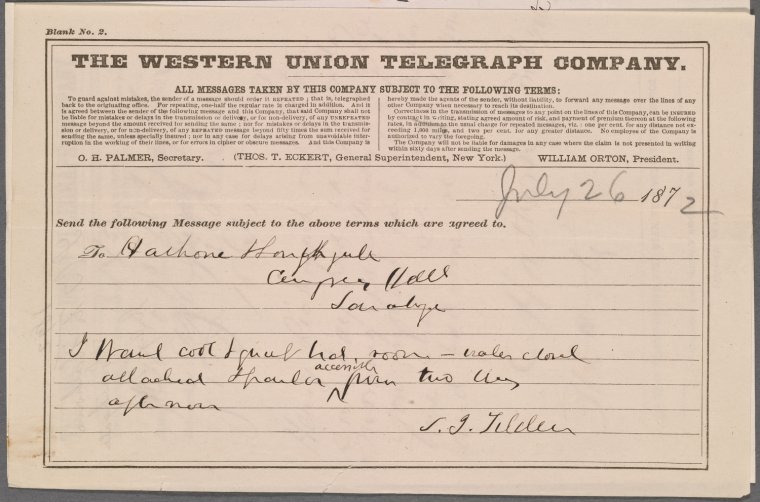 Blank No. 2.
THE WESTERN UNION TELEGRAPH COMPANY.
ALL MESSAGES TAKEN BY THIS COMPANY SUBJECT TO THE FOLLOWING TERMS:
To guard against mistakes, the sender of a message should order it REPEATED; that is, telegraphed
back to the originating office. For repeating, one-half the regular rate is charged in addition. And it
is agreed between the sender of the following message and this Company, that said Company shall not
be liable for mistakes or delays in the transmission or delivery, or for non-delivery, of any UNREPEATED
message beyond the amount received for sending the same; nor for mistakes or delays in the transmis-
sion or delivery, or for non-delivery, of any REPEATED message beyond fifty times the sum received for
sending the same, unless specially insured; nor in any case for delays arising from unavoidable inter-
ruption in the working of their lines, or for errors in cipher or obscure messages. And this Company is
hereby made the agents of the sender, without liability, to forward any message over the lines of any
other Company when necessary to reach its destination.
Correctness in the transmission of messages to any point on the lines of this Company, can be INSURED
by contract in writing, stating agreed amount of risk, and payment of premium thereon at the following
rates, in addition to the usual charge for repeated messages, viz: one per cent. for any distance not ex-
ceeding 1,000 miles, and two per cent. for any greater distance. No employee of the Company is
authorized to vary the foregoing.
The Company will not be liable for damages in any case where the claim is not presented in writing
within sixty days after sending the message.
O. H. PALMER, Secretary. (THOS. T. ECKERT, General Superintendent, New York.) WILLIAM ORTON, President.
July 26 1872
Send the following Message subject to the above terms which are agreed to.
To Hathorn
Congress Hall
Saratoga
I want cool & quiet bed room – water closet
attached & parlor accessible from two days
afternoon
S. J. Tilden